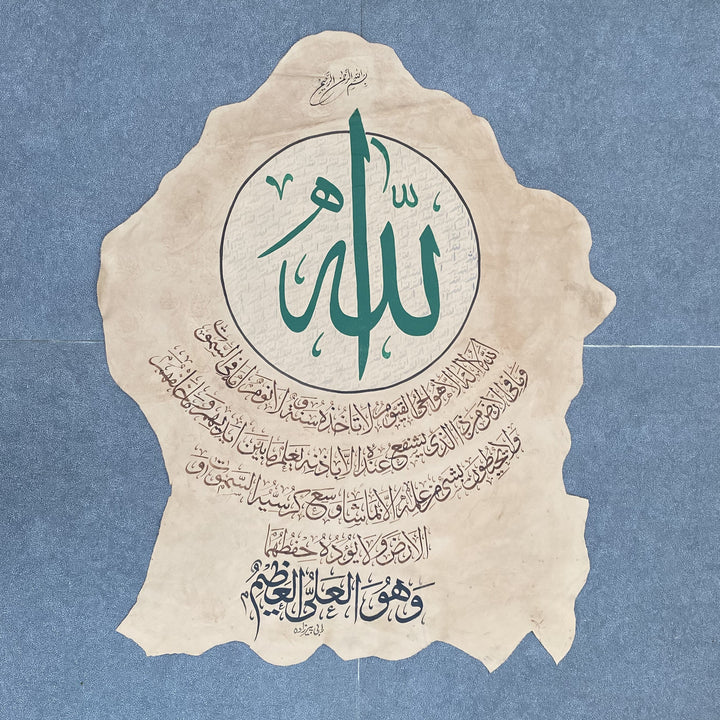 بسم الله الرحمن الرحيم
الله
الله لا اله الا هو الحي القيوم لا تاخذه سنة ولا نوم له ما في السموت
وما في الارض من ذا الذي يشفع عنده الا باذنه يعلم ما بين ايديهم وما خلفهم
ولا يحيطون بشيء من علمه الا بما شا وسع كرسيه السموت و
الارض ولا يؤده حفظهما
وهو العلي العظيم